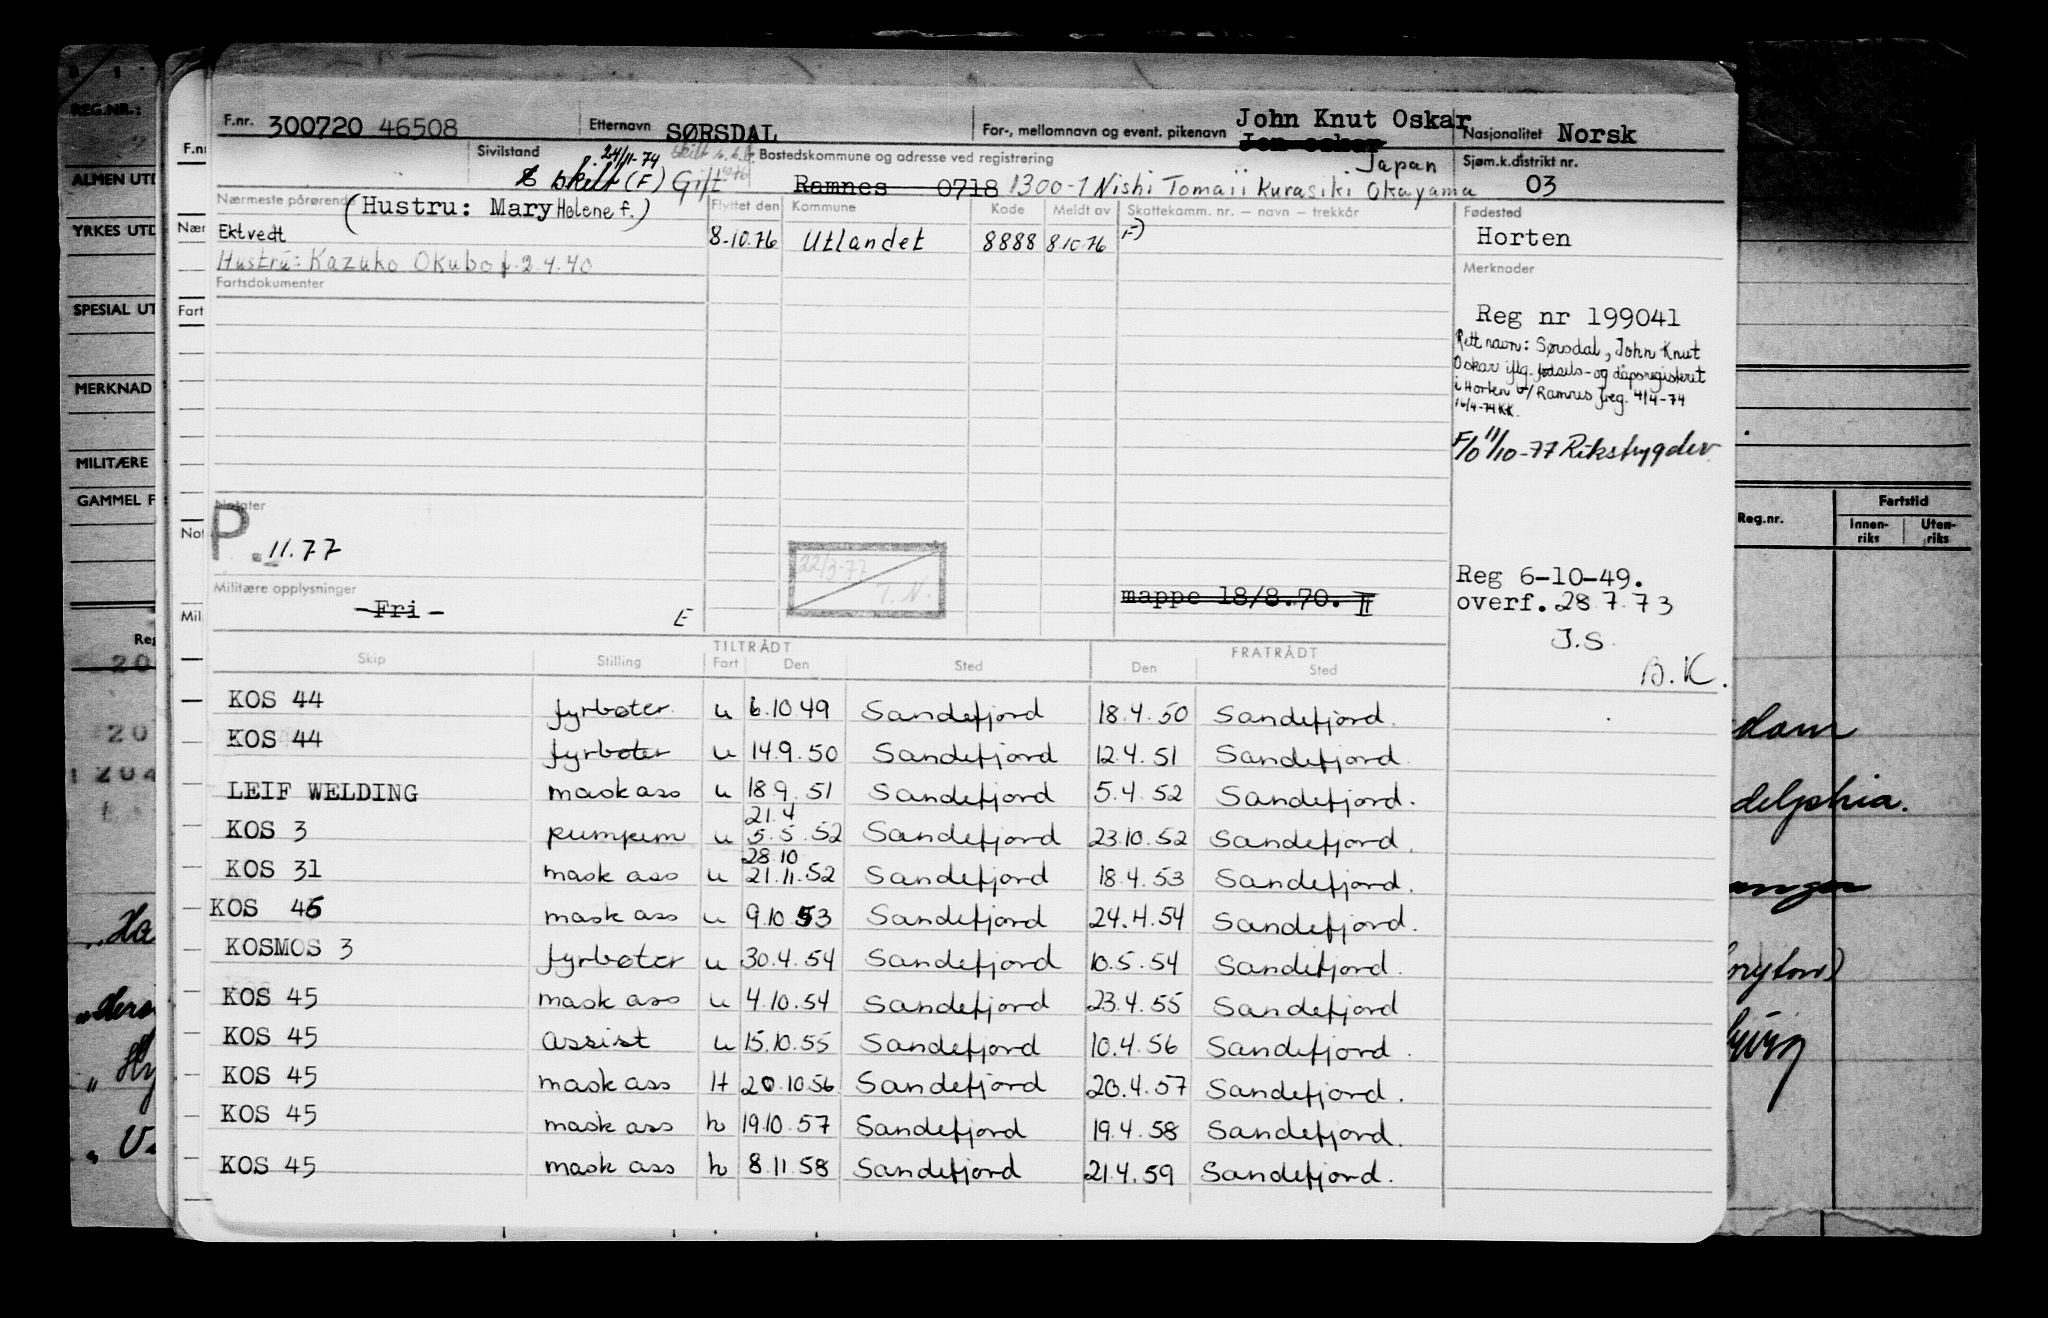 F.nr. 300720 46508 Etternavn SØRSDAL For-, mellomnavn og event. pikenavn John Knut Oskar Nasjonalitet Norsk
Jon oskar
Sivilstand 24/11-74 Bostedskommune og adresse ved registrering Japan Sjøm.k.distrikt nr.
skilt (F) Gift Ramnes 0718 1300-1 Nishi Tomaii Kurasiki Okayama 03
Nærmeste pårørende (Hustru: Mary Helene f.) Flyttet den Kommune Kode Meldt av Skattekomm. nr. — navn — trekkår Fødested
Ektvedt 8-10.76 Utlandet 8888 8.10.76 F) Horten
Hustru: Kazuko Okubo f. 2.4.40 Merknader
Fartsdokumenter
Reg nr 199041
Rett navn: Sørsdal, John Knut
Oskar iflg. fødsels- og dåpsregisteret
i Horten b/Ramnes freg. 4/4-74
16/4-74 KK.
F/0 11/10-77 Rikstrygdev.
Notater
P. 11.77
22/3-77
T.N.
Militære opplysninger
-Fri- E mappe 18/8.70. II
Reg 6-10-49.
overf. 28.7.73
J.S.
B.K.
TILTRÅDT FRATRÅDT
Skip Stilling Fart Den Sted Den Sted
KOS 44 fyrbøter u 6.10.49 Sandefjord 18.4.50 Sandefjord.
KOS 44 fyrbøter u 14.9.50 Sandefjord 12.4.51 Sandefjord.
LEIF WELDING mask ass u 18.9.51 Sandefjord 5.4.52 Sandefjord.
21.4
KOS 3 pumpem u 5.5.52 Sandefjord 23.10.52 Sandefjord.
28.10
KOS 31 mask ass u 21.11.52 Sandefjord 18.4.53 Sandefjord.
KOS 45 mask ass u 9.10.53 Sandefjord 24.4.54 Sandefjord.
KOSMOS 3 fyrbøter u 30.4.54 Sandefjord 10.5.54 Sandefjord.
KOS 45 mask ass u 4.10.54 Sandefjord 23.4.55 Sandefjord
KOS 45 assist u 15.10.55 Sandefjord 10.4.56 Sandefjord.
KOS 45 mask ass H 20.10.56 Sandefjord 20.4.57 Sandefjord.
KOS 45 mask ass h 19.10.57 Sandefjord 19.4.58 Sandefjord.
KOS 45 mask ass h 8.11.58 Sandefjord 21.4.59 Sandefjord.
REG.NR.:
ALMEN UTD
YRKES UTD
SPESIAL UT
MERKNAD
MILITÆRE
GAMMEL F
Reg
20
20
204
F.nr
Nær
Fart
Not
Mil
Reg.nr. Fartstid
Innen-riks Uten-riks
dam
delphia.